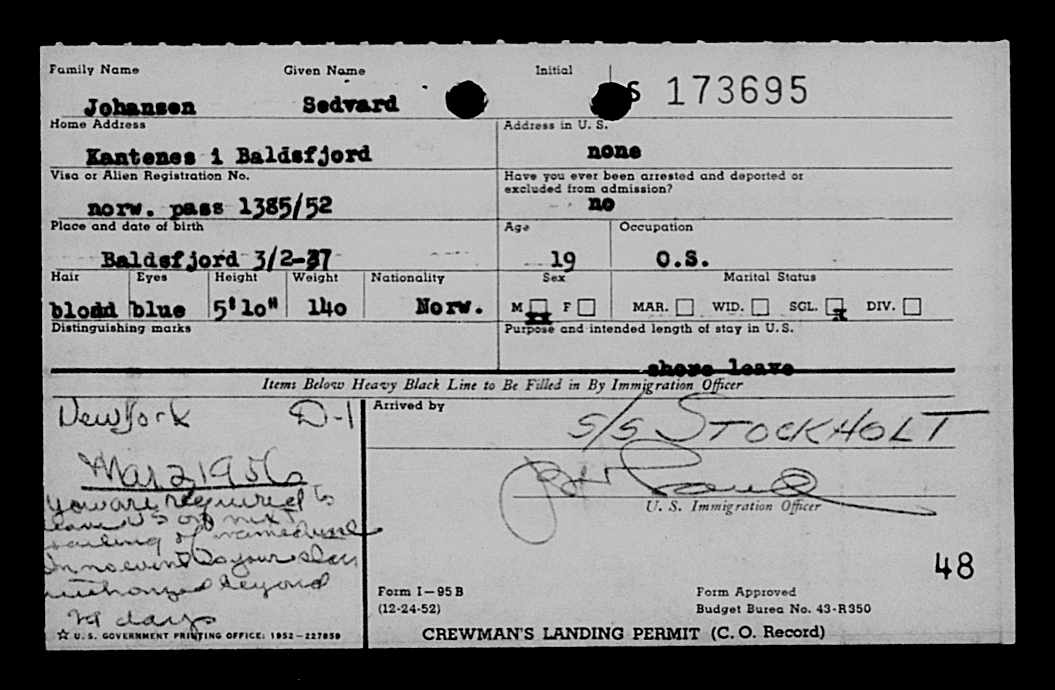 Family Name Given Name Initial S 173695
Johansen Sedvard
Home Address Address in U. S.
Kantenes i Baldsfjord none
Visa or Alien Registration No. Have you ever been arrested and deported or
excluded from admission?
norw. pass 1385/52 no
Place and date of birth Age Occupation
Baldsfjord 3/2-37 19 O.S.
Hair Eyes Height Weight Nationality Sex Marital Status
blond blue 5'10" 140 Norw. M F MAR. WID. SGL. DIV.
Distinguishing marks Purpose and intended length of stay in U.S.
shore leave
Items Below Heavy Black Line to Be Filled in By Immigration Officer
New York D-1 Arrived by
S/S STOCKHOLT
Mar 2 1956
You are required to
leave US on next
sailing of named vessel
In no event is your stay
authorized beyond
29 days
U. S. Immigration Officer
48
Form I-95 B Form Approved
(12-24-52) Budget Burea No. 43-R350
☆ U. S. GOVERNMENT PRINTING OFFICE: 1952-227859
CREWMAN'S LANDING PERMIT (C. O. Record)